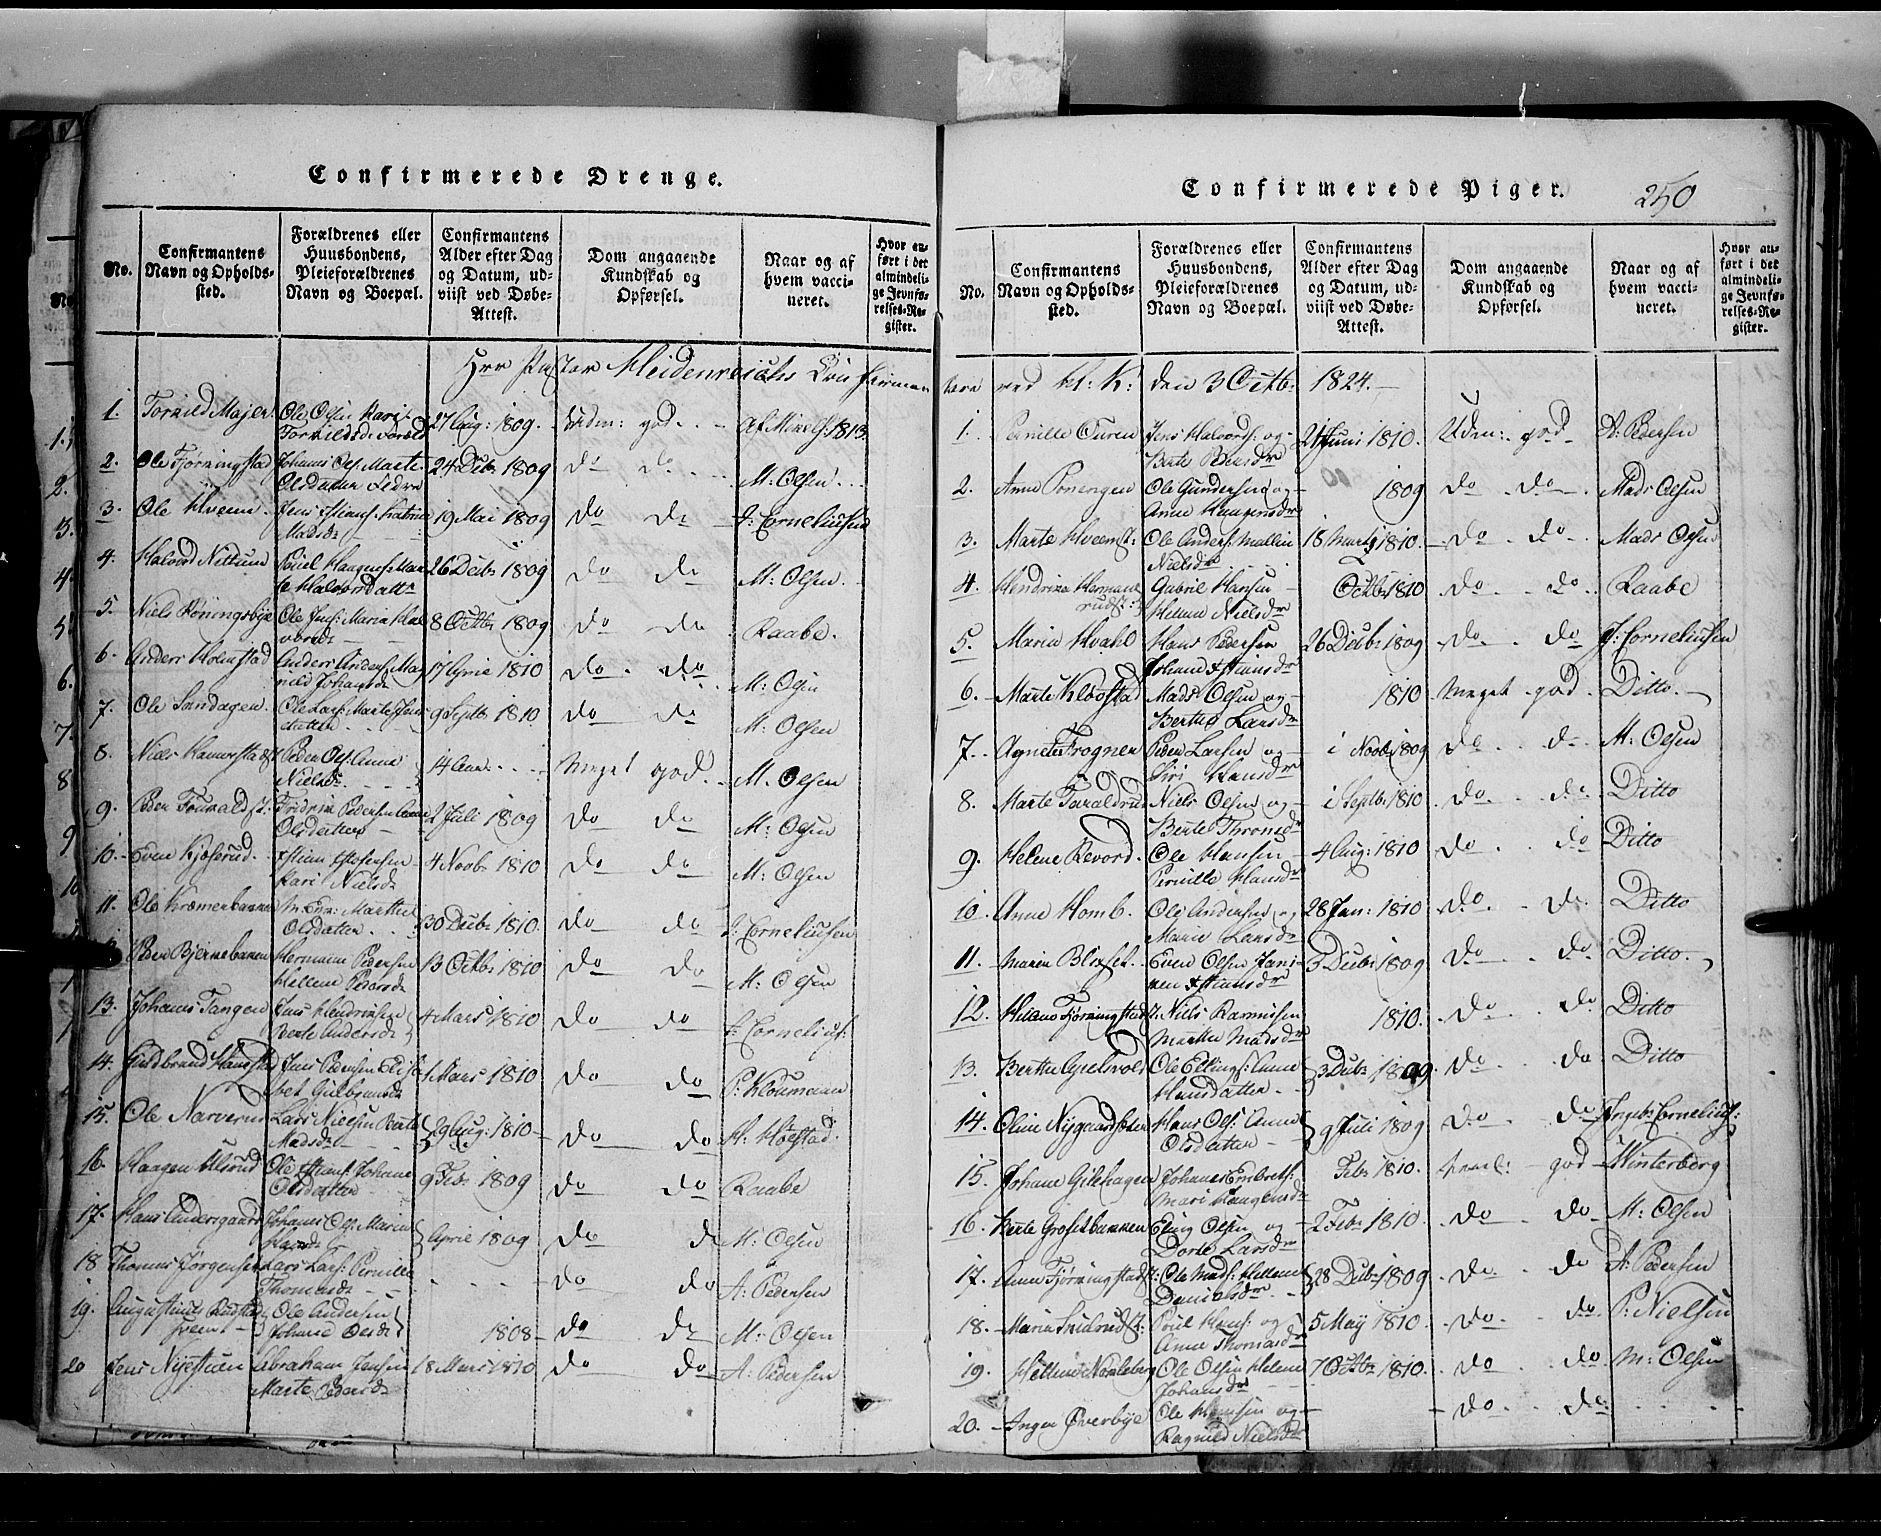 Confirmerede Drenge.
No.
Confirmantens Navn og Opholdssted.
Forældrenes eller Huusbondens, Pleieforældrenes Navn og Boepæl.
Confirmantens Alder efter Dag og Datum, udviist ved Døbe-Attest.
Dom angaaende Kundskab og Opførsel.
Naar og af hvem vaccineret.
Hvor anført i det almindelige Jevnførelses-Register.
Herr Pastor Heidenreichs Confirman
1. Torkild Majer Ole Olsen Kari Torkildsd. 27 Aug: 1809. Udm: god. Af M: 1813
2. Ole Fjørningstad Johans Ols. Marte Olsdatter 24 Decbr 1809 do do M: Olsen
3. Ole Kveem Jens Hans. Katrine Madsdr 19 Mai 1809 do do J: Corneliusen
4. Halvord Nettum Poul Haagens. Mar te Halvordsdattr 26 Decbr 1809 do do M: Olsen.
5. Niels Køningsbye Ole Jens: Maria Hal vorsdr 8 Octbr 1809 do do Raabe.
6. Anders Holmstad Anders Anders. Ma Johansdr 17 April 1810 do do M: Olsen
7. Ole Sandagen. Ole Lars: Marte datter 9 Septbr 1810 do do M: Olsen
8. Niels Hammerstad Peder Ols. Anne Nielsdr 14 Aar Meget god. M. Olsen
9. Peder Fridrik Pedersen Anne Olsdatter 2 Juli 1809 do do M: Olsen
10. Even Kjøserud. Stian Kari Nielsdr 4 Novbr 1810 do do M: Olsen
11. Ole Kræmerbakken Marthe Olsdatter 30 Decbr 1810 do do J: Corneliusen
Peder Bjernebakken Hermann Pedersen Hellene Pedersdr 13 Octbr 1810 do do M: Olsen
13. Johans Tangen Jens Hendriksen Berte Andersdr 4 Mars 1810 do do J: Cornelius:
14. Guldbrand Jens Pedersen Elisa bet Gulbransdr 4 Mars 1810 do do P. Kloumann
15. Ole Narverud Lars Nielsen Berte Madsdr 29 Aug: 1810 do do H: Høestad.
16. Haagen Ulsrud Ole Hans. Johane Olsdatter 9 Febr 1809 do do Raabe
17. Hans Andersgaard Johanes Ols. Maria 9 April 1809 do do M: Olsen
18 Thomas Jørgensen Lars Lars: Pernille Thomasdr do do A: Pedersen
19. Augustinus Ole Andersen Johanne Olsdr 1808 do do M: Olsen
20 Jens Nyestuen Abraham Jensen Marte Pedersdr 18 Mars 1810 do do A: Pedersen
Confirmerede Piger.
250
No.
Confirmantens Navn og Opholdssted.
Forældrenes eller Huusbondens, Pleieforældrenes Navn og Boepæl.
Confirmantens Alder efter Dag og Datum, udviist ved Døbe-Attest.
Dom angaaende Kundskab og Opførsel.
Naar og af hvem vaccineret.
Hvor anført i det almindelige Jevnførelses-Register.
tere ved Hl: K: den 3 Octb: 1824.
1. Pernille Øuren Jens Halvords: og Berte Pedersdr 21 Juni 1810. Udm: god A: Pedersen
2. Anne Ponengen Ole Gundersen og Anne Haagensdr 1809 do do Mads Olsen
3. Marte Kveem Ole Anders: Mallin Nielsdr 18 Marts 1810. do do Mads Olsen
4. Hendrine Hermans rudst: Gabriel Hansen Hellene Nielsdr Octbr 1810 do do Raabe
5. Maria Kvahl Hans Pedersen Johane Hansdr 26 Decbr 1809 do do J: Corneliusen
6. Marte Klogstad Mads Olsen og Berthe Larsdr 1810 Meget god Ditto.
7. Agnete Frogner Peder Larsen og Siri Hansdr i Novbr 1809 do do M: Olsen
8. Marte Taraldrud Niels Olsen og Berte Thronsdr i Septbr 1810 do do Ditto
9. Helene Revord. Ole Hansen Pernille Hansdr 4 Aug: 1810 do do Ditto
10. Anne Homb. Ole Andersen og Marie Larsdr 28 Jan: 1810 do do Ditto
11. Maria Blixset. Even Olsen Hansdr 3 Decbr 1809 do do Ditto.
12. Helene Fjørningstad Niels Rasmusen Marthe Madsdr 1810. do do Ditto
13. Berthe Gjelsvold Ole Ellings: Anne Hansdatter 3 Decbr 1809. do do Ditto
14. Oline Nygaardseten Hans Ols: Anne Olsdatter 9 Juli 1809 do do Cornelius:
15. Johane Gilehagen Johanes Embrets: Mari Haagensdr Febr 1810. god Winterberg
16. Berte Grosetbakken Eling Olsen og Dorte Larsdr 2 Febr 1810. do do M: Olsen
17. Anne Fjørningstad Ole Mads: Hellene Danielsdr 28 Decbr 1809 do do A: Pedersen
18. Maria Poul Hans: og Anne Thomasdr 5 May 1810. do do P: Nielsen
19. Hellene Narteberg Ole Olsen Helene Johansdr 7 Octbr 1810. do do M: Olsen
20. Inger Øverbye Ole Hansen og Ragnild Nielsdr do do